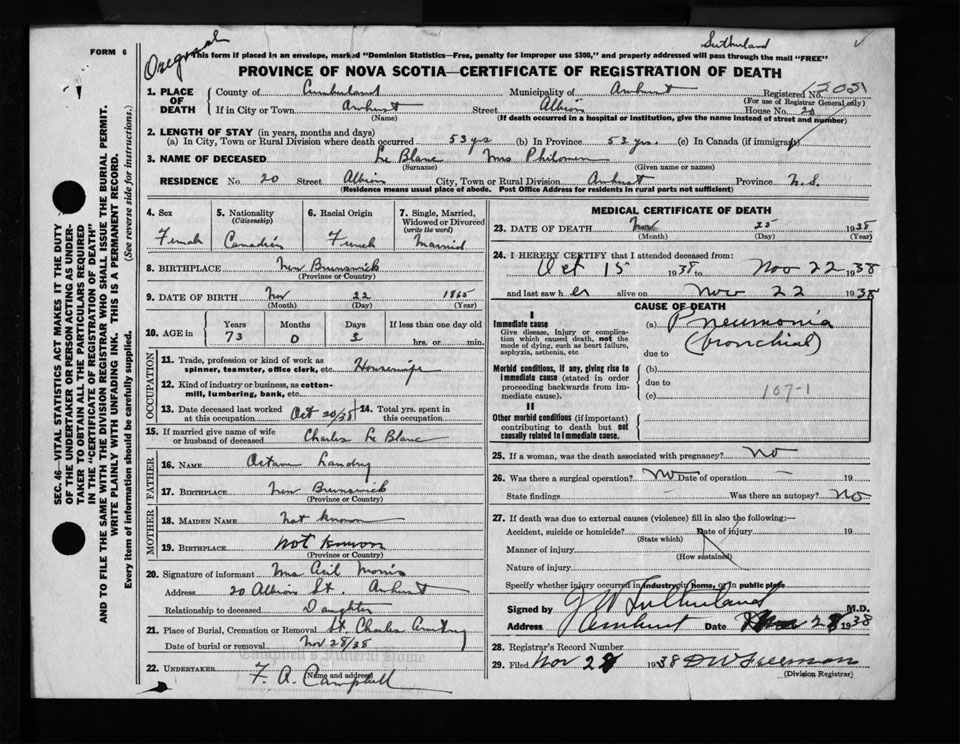 Original
Sutherland
FORM 6
This form if placed in an envelope, marked "Dominion Statistics—Free, penalty for improper use $300," and properly addressed will pass through the mail "FREE"
PROVINCE OF NOVA SCOTIA—CERTIFICATE OF REGISTRATION OF DEATH
1. PLACE OF DEATH County of Cumberland Municipality of Amherst Registered No.
(For use of Registrar General only)
If in City or Town Amherst Street Albion House No. 20
(Name) (If death occurred in a hospital or institution, give the name instead of street and number)
2. LENGTH OF STAY (in years, months and days)
(a) In City, Town or Rural Division where death occurred 53 yrs (b) In Province 53 yrs. (c) In Canada (if immigrant)
3. NAME OF DECEASED Le Blanc Mrs Philomen
(Surname) (Given name or names)
RESIDENCE No. 20 Street Albion City, Town or Rural Division Amherst Province N.S.
(Residence means usual place of abode. Post Office Address for residents in rural parts not sufficient)
4. Sex Female
5. Nationality (Citizenship) Canadian
6. Racial Origin French
7. Single, Married, Widowed or Divorced (write the word) Married
8. BIRTHPLACE New Brunswick
(Province or Country)
9. DATE OF BIRTH Nov 22 1865
(Month) (Day) (Year)
10. AGE in Years 73 Months 0 Days 3 If less than one day old hrs. or min.
OCCUPATION
11. Trade, profession or kind of work as spinner, teamster, office clerk, etc. Housewife
12. Kind of industry or business, as cotton-mill, lumbering, bank, etc.
13. Date deceased last worked at this occupation Oct 20/38 14. Total yrs. spent in this occupation
15. If married give name of wife or husband of deceased Charles Le Blanc
FATHER
16. NAME Landry
17. BIRTHPLACE New Brunswick
(Province or Country)
MOTHER
18. MAIDEN NAME Not known
19. BIRTHPLACE Not known
(Province or Country)
20. Signature of informant Mrs Morris
Address 20 Albion St. Amherst
Relationship to deceased Daughter
21. Place of Burial, Cremation or Removal St. Charles
Date of burial or removal Nov 28/38
Campbell's Funeral Home
22. UNDERTAKER F. A. Campbell
(Name and address)
MEDICAL CERTIFICATE OF DEATH
23. DATE OF DEATH Nov 25 1938
(Month) (Day) (Year)
24. I HEREBY CERTIFY that I attended deceased from:
Oct 15 1938 to Nov 22 1938
and last saw her alive on Nov 22 1938
CAUSE OF DEATH
I
Immediate cause
Give disease, injury or complication which caused death, not the mode of dying, such as heart failure, asphyxia, asthenia, etc
(a) Pneumonia
(bronchial)
due to
Morbid conditions, if any, giving rise to immediate cause (stated in order proceeding backwards from immediate cause).
(b)
due to
(c) 107-1
II
Other morbid conditions (if important) contributing to death but not causally related to immediate cause.
25. If a woman, was the death associated with pregnancy? No
26. Was there a surgical operation? No Date of operation — 19
State findings Was there an autopsy? No
27. If death was due to external causes (violence) fill in also the following:—
Accident, suicide or homicide? Date of injury 19
(State which)
Manner of injury
(How sustained)
Nature of injury
Specify whether injury occurred in industry, in home, or in public place
Signed by J W Sutherland M.D.
Address Amherst Date Nov 28 1938
28. Registrar's Record Number
29. Filed Nov 28 1938 D W Freeman
(Division Registrar)
SEC. 46—VITAL STATISTICS ACT MAKES IT THE DUTY
OF THE UNDERTAKER OR PERSON ACTING AS UNDER-
TAKER TO OBTAIN ALL THE PARTICULARS REQUIRED
IN THE "CERTIFICATE OF REGISTRATION OF DEATH"
AND TO FILE THE SAME WITH THE DIVISION REGISTRAR WHO SHALL ISSUE THE BURIAL PERMIT.
WRITE PLAINLY WITH UNFADING INK. THIS IS A PERMANENT RECORD.
Every item of information should be carefully supplied. (See reverse side for instructions.)